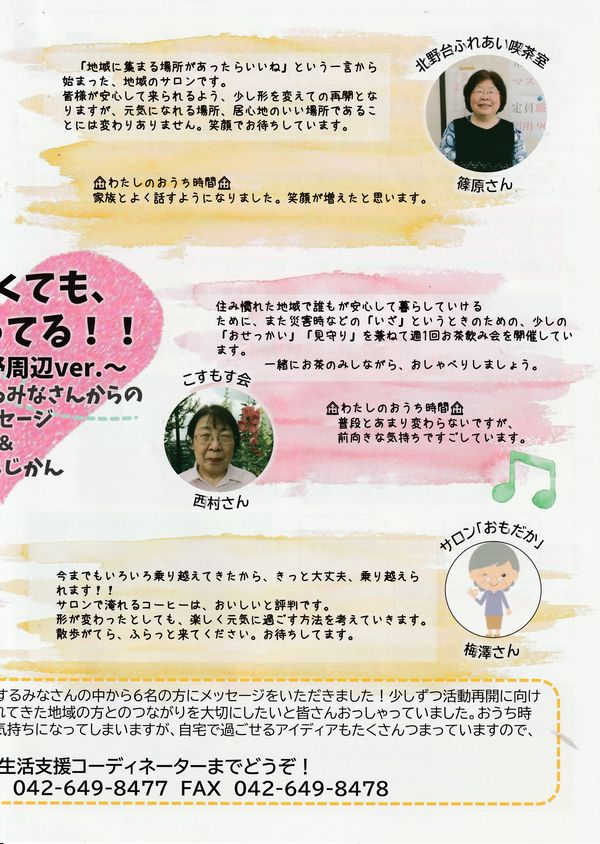 北野台ふれあい喫茶室
「地域に集まる場所があったらいいね」という一言から
始まった、地域のサロンです。
皆様が安心して来られるよう、少し形を変えての再開とな
りますが、元気になれる場所、居心地のいい場所であるこ
とには変わりありません。笑顔でお待ちしています。
マス
定員厳
利用 90
篠原さん
わたしのおうち時間
家族とよく話すようになりました。笑顔が増えたと思います。
くても、
ってる！！
野周辺ver.～
るみなさんからの
セージ
＆
じかん
住み慣れた地域で誰もが安心して暮らしていける
ために、また災害時などの「いざ」というときのための、少しの
「おせっかい」「見守り」を兼ねて週1回お茶飲み会を開催してい
ます。
一緒にお茶のみしながら、おしゃべりしましょう。
こすもす会
西村さん
わたしのおうち時間
普段とあまり変わらないですが、
前向きな気持ちですごしています。
サロン「おもだか」
梅澤さん
今までもいろいろ乗り越えてきたから、きっと大丈夫、乗り越えら
れます！！
サロンで淹れるコーヒーは、おいしいと評判です。
形が変わったとしても、楽しく元気に過ごす方法を考えていきます。
散歩がてら、ふらっと来てください。お待ちしてます。
するみなさんの中から６名の方にメッセージをいただきました！少しずつ活動再開に向け
れてきた地域の方とのつながりを大切にしたいと皆さんおっしゃっていました。おうち時
気持ちになってしまいますが、自宅で過ごせるアイディアもたくさんつまっていますので、
生活支援コーディネーターまでどうぞ！
042-649-8477 FAX 042-649-8478